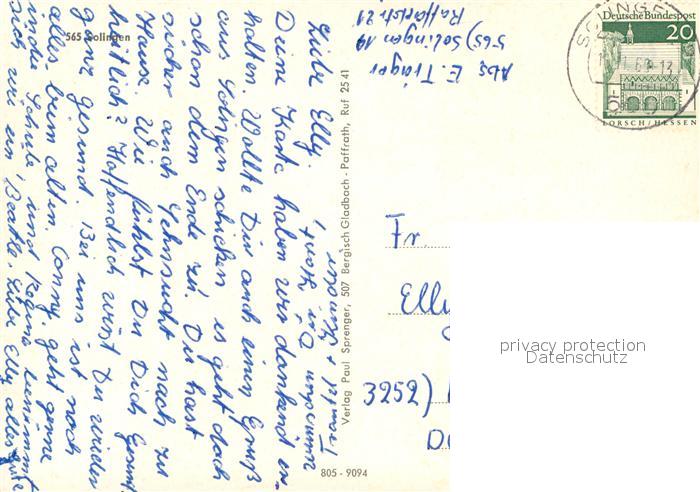 565 Solingen
Abs. E. Träger
565) Solingen 19
SOLINGEN
Deutsche Bundespost
20
LORSCH/HESSEN
Liebe Elly.
Deine Karte haben wir dankend er-
halten. Wollte Dir auch einen Gruß
aus Solingen schicken es geht doch
schon dem Ende zu. Du hast
sicher auch Sehnsucht nach zu
Hause. Wie fühlst Du Dich Gesund-
heitlich? Hoffendlich wirst Du wieder
ganz gesund. Bei uns ist noch
alles beim alten. Conny. geht gerne
in die Schule und benimmt
sich wie ein Beatle. Liebe Elly alles gute
Verlag Paul Sprenger, 507 Bergisch Gladbach - Paffrath, Ruf 25 41
805 - 9094
Fr.
Elly
3252)
privacy protection
Datenschutz